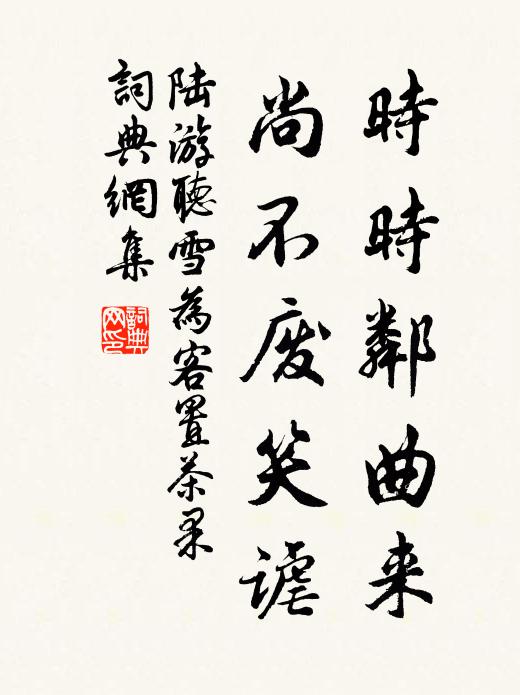 時時鄰曲来
尚不废笑谑
陆游聽雪為客置茶果
詞典網集
詞典
网印